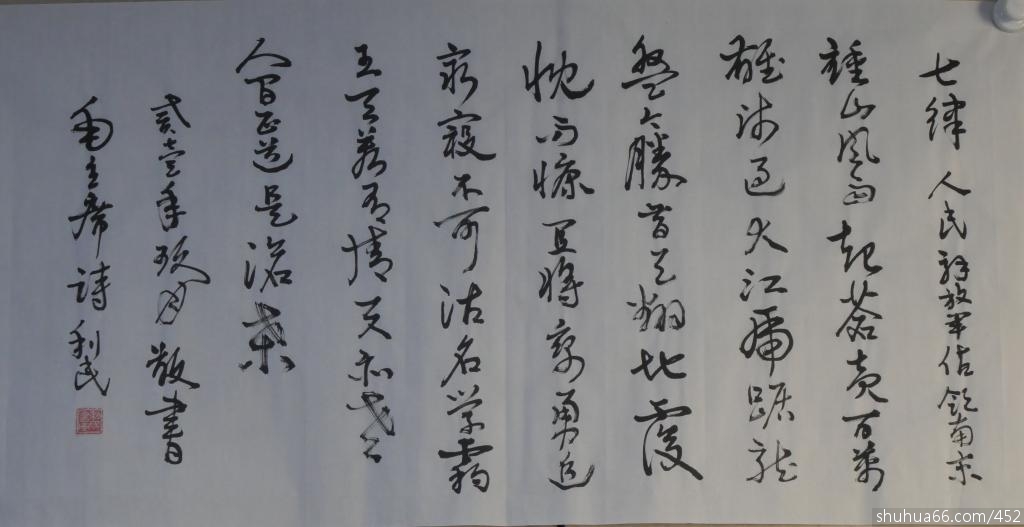 七律 人民解放军佔领南京
鍾山风雨起苍黄百萬
雄师过大江虎踞龙
盘今勝昔天翻地覆
慨而慷宜将剩勇追
穷寇不可沽名学霸
王天若有情天亦老
人间正道是沧桑
贰壹年玖月散書
毛主席詩 利民
shuhua66.com/452